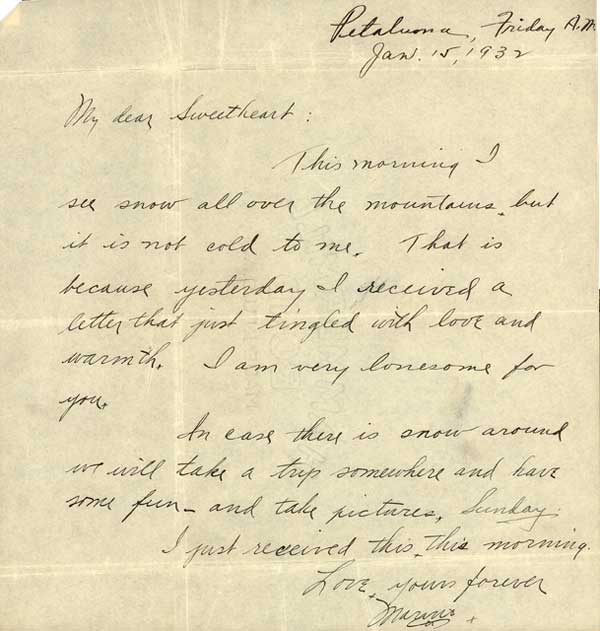 Petaluma, Friday A.M.
Jan. 15, 1932
My dear Sweetheart:
This morning I
see snow all over the mountains, but
it is not cold to me. That is
because yesterday I received a
letter that just tingled with love and
warmth. I am very lonesome for
you.
In case there is snow around
we will take a trip somewhere and have
some fun - and take pictures, Sunday.
I just received this, this morning.
Love, yours forever